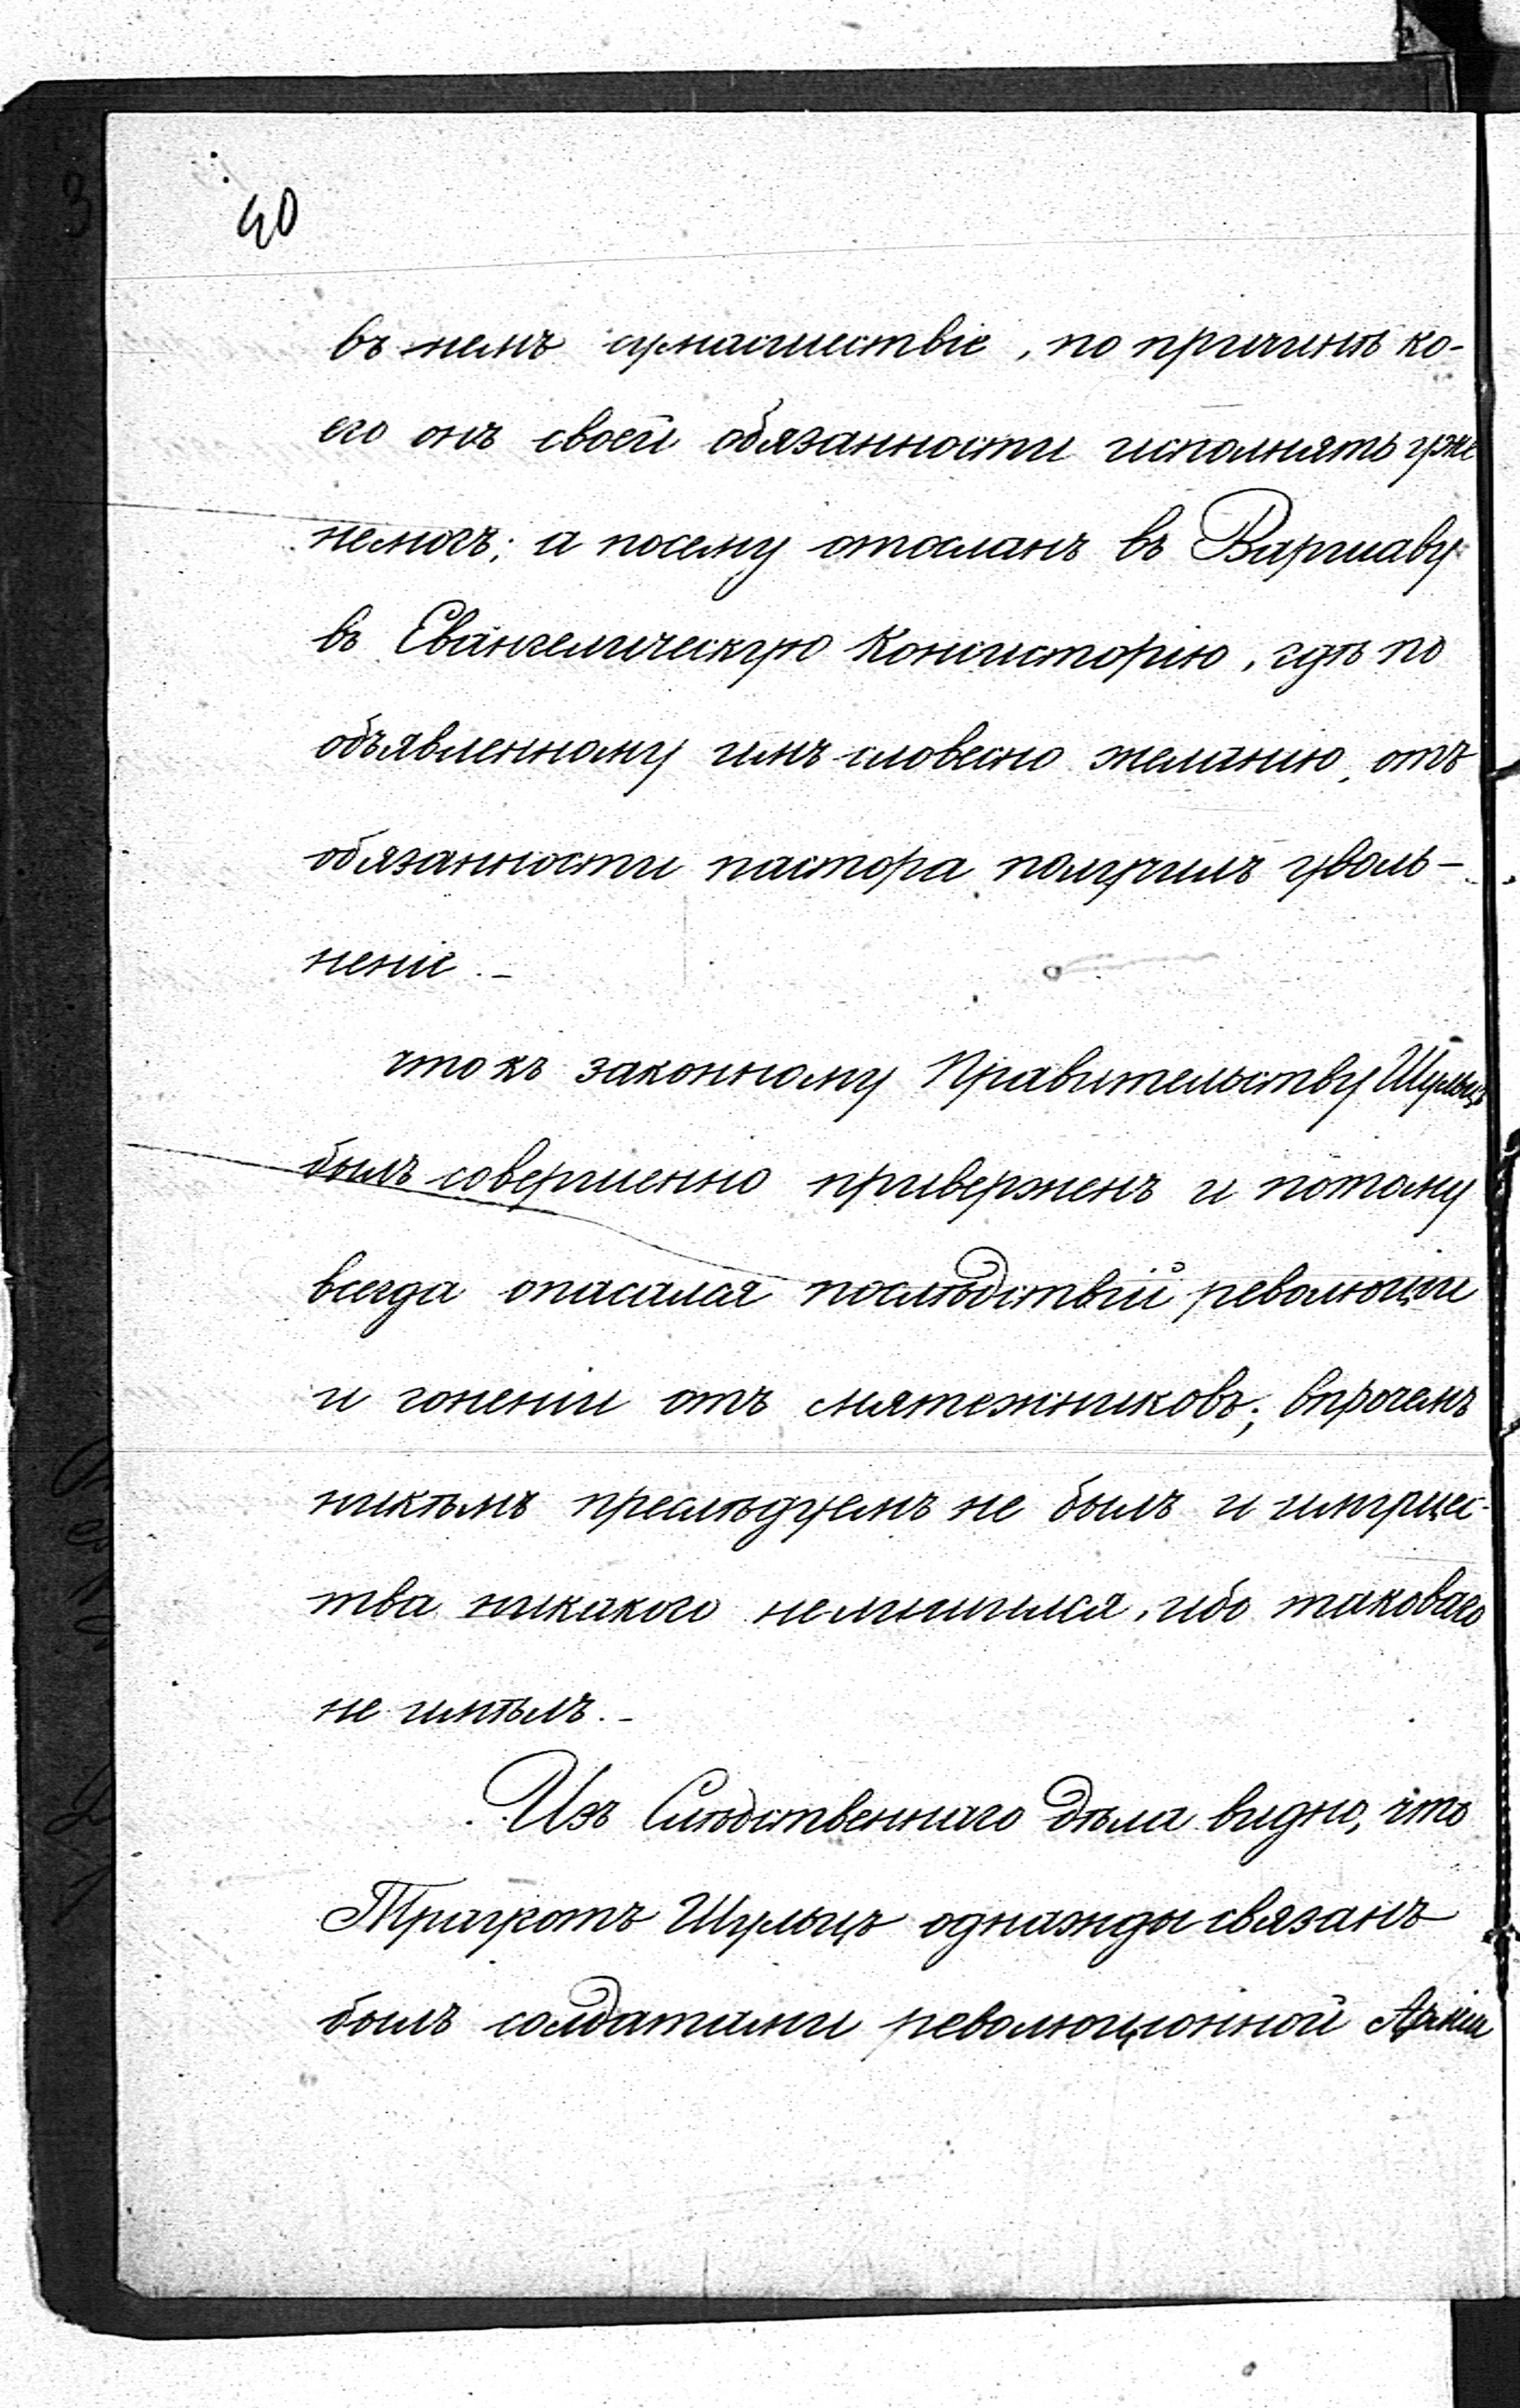 40
въ немъ сумасшествіе, по причинѣ ко-
его онъ своей обязанности исполнять уже
немогъ; а посему отосланъ въ Варшаву
въ Евангелическую Консисторію, гдѣ по
объявленному имъ словесно желанію, отъ
обязанности пастора получилъ уволь-
неніе.-
что къ законному Правительству Шульцъ
былъ совершенно приверженъ и потому
всегда опасался послѣдствій революціи
и гоненіи отъ мятежниковъ; впрочемъ
никѣмъ преслѣдуемъ не былъ и имущес-
тва никакого нелишился, ибо таковаго
не имѣлъ.-
Изъ Слѣдственнаго дѣла видно, что
Трауготъ Шульцъ однажды связанъ
былъ солдатами революціонной Арміи